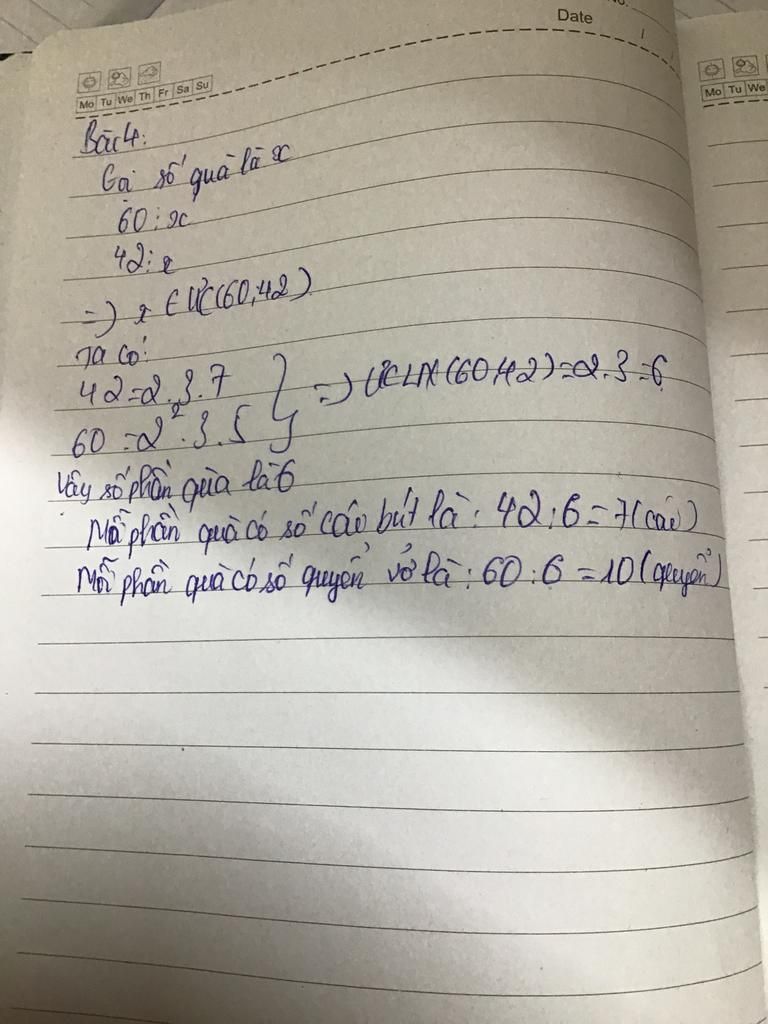 No.
Date / /
Mo Tu We Th Fr Sa Su
Mo Tu We
Bài 4:
Gọi số quà là x
60 ⋮ x
42 ⋮ x
=> x ∈ ƯC(60,42)
Ta có:
42 = 2.3.7
60 = 2².3.5 } => ƯCLN(60,42) = 2.3 = 6
Vậy số phần quà là 6
Mỗi phần quà có số cái bút là: 42 : 6 = 7 (cái)
Mỗi phần quà có số quyển vở là: 60 : 6 = 10 (quyển)